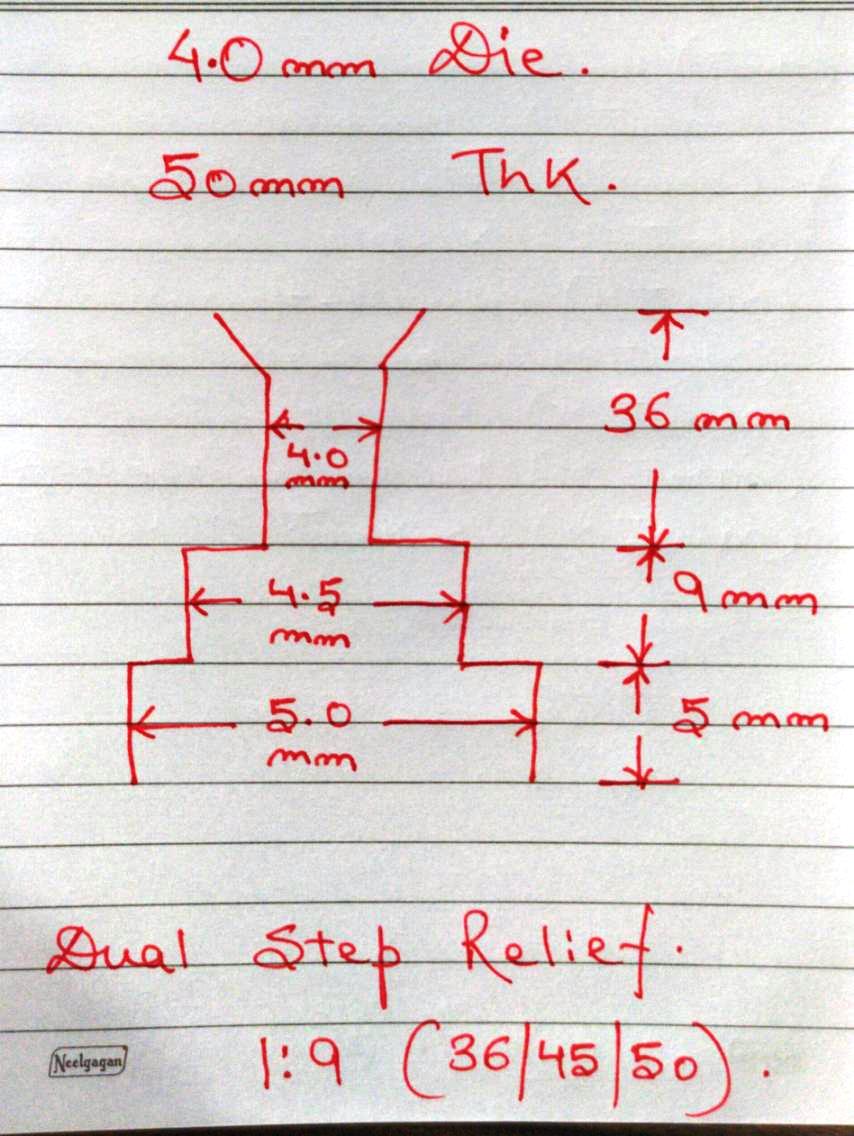 4.0 mm Die.
50 mm Thk.
36 mm
4.0
mm
4.5
mm
9 mm
5.0
mm
5 mm
Dual Step Relief.
1:9 (36/45/50).
Neelgagan